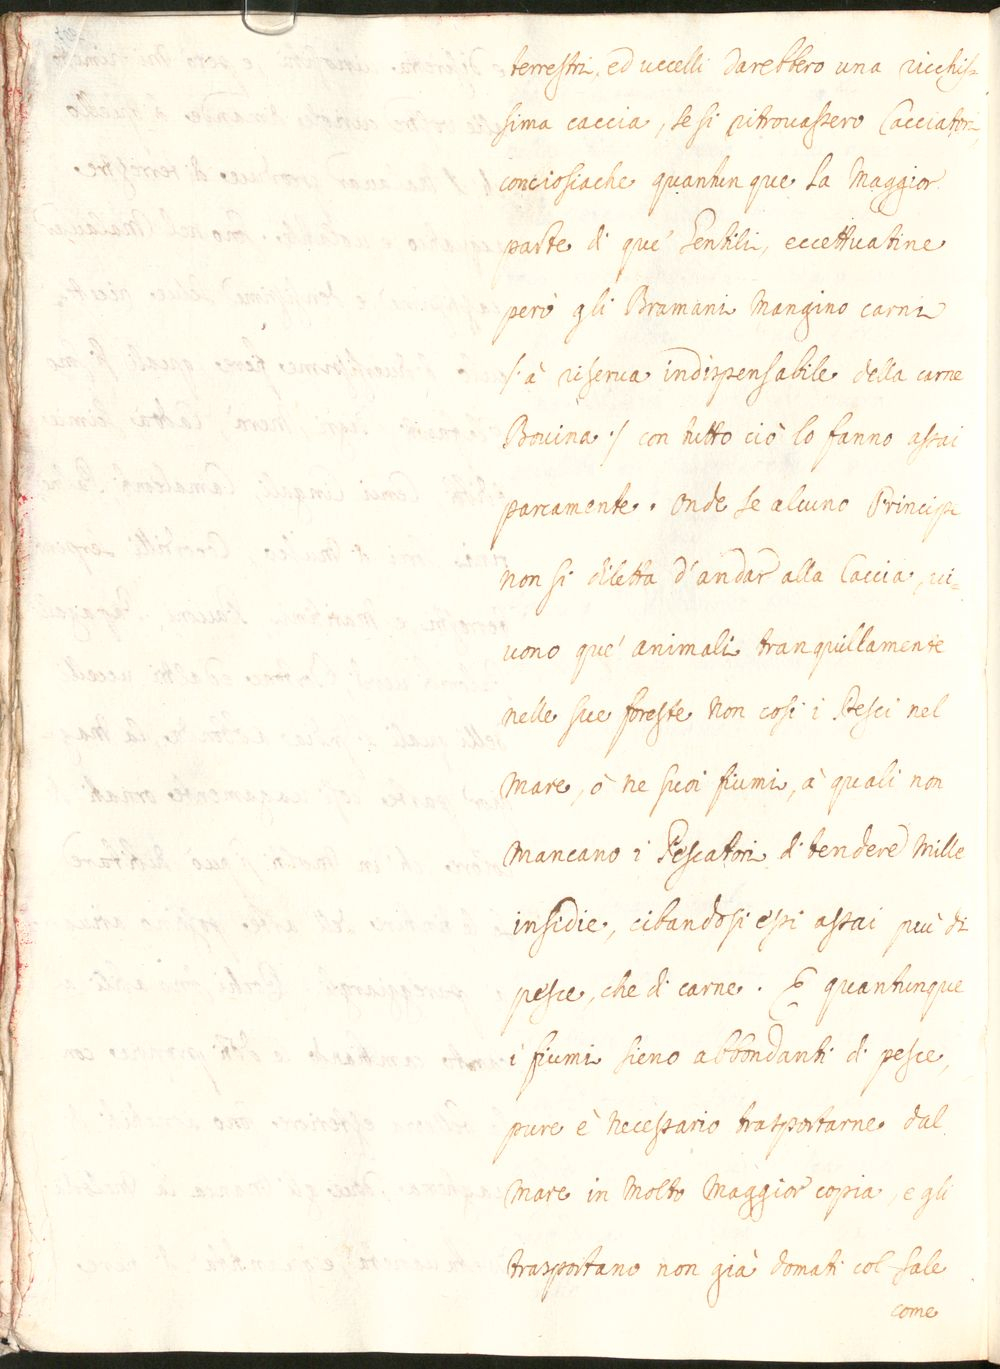 terrestri, ed uccelli darebbero una ricchis-
sima caccia, se si ritrovassero Cacciatori,
conciosiache quantunque la Maggior
parte di que' Gentili, eccettuatine
però gli Bramani Mangino carni
/:à riserva indispensabile della carne
Bovina:/ con tutto ciò lo fanno assai
parcamente. Onde se alcuno Principe
non si diletta d'andar alla Caccia, vi-
vono que' animali tranquillamente
nelle sue foreste Non così i Pesci nel
Mare, ò ne suoi fiumi, à quali non
Mancano i Pescatori di tendere Mille
insidie, cibandosi essi assai più di
pesce, che di carne. E quantunque
i fiumi sieno abbondanti di pesce,
pure è necessario trasportarne dal
Mare in Molto Maggior copia, e gli
trasportano non già domati col sale
come